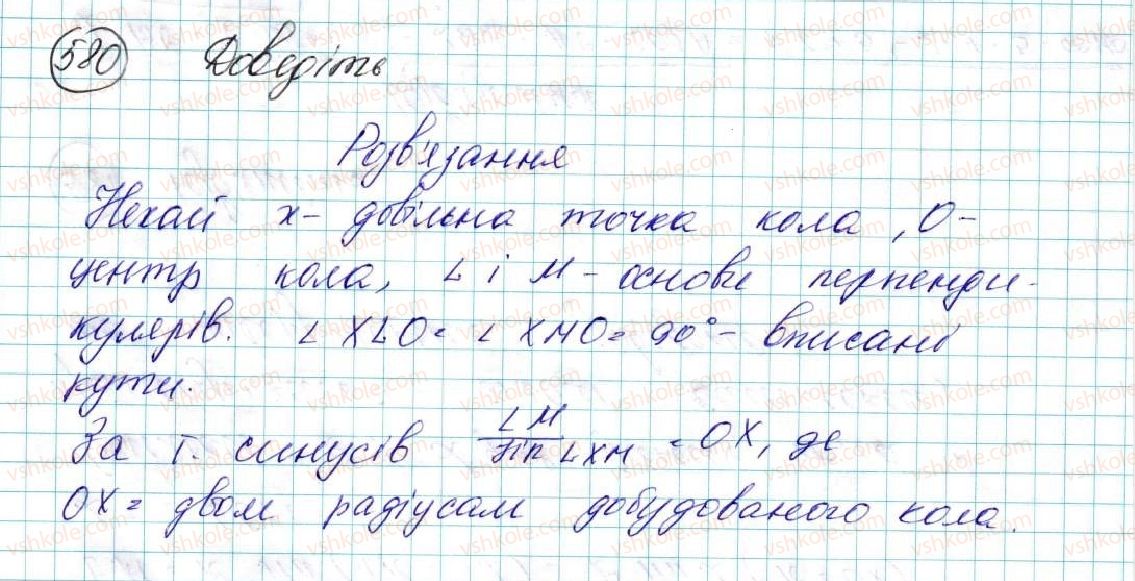 580 Доведіть
Розв'язання
Нехай х - довільна точка кола, О -
центр кола, L і М - основи перпенди-
кулярів. ∠ XLO = ∠ XMO = 90° - вписані
кути.
За т. синусів LM / sin LXM = OX, де
OX = двом радіусам добудованого кола.